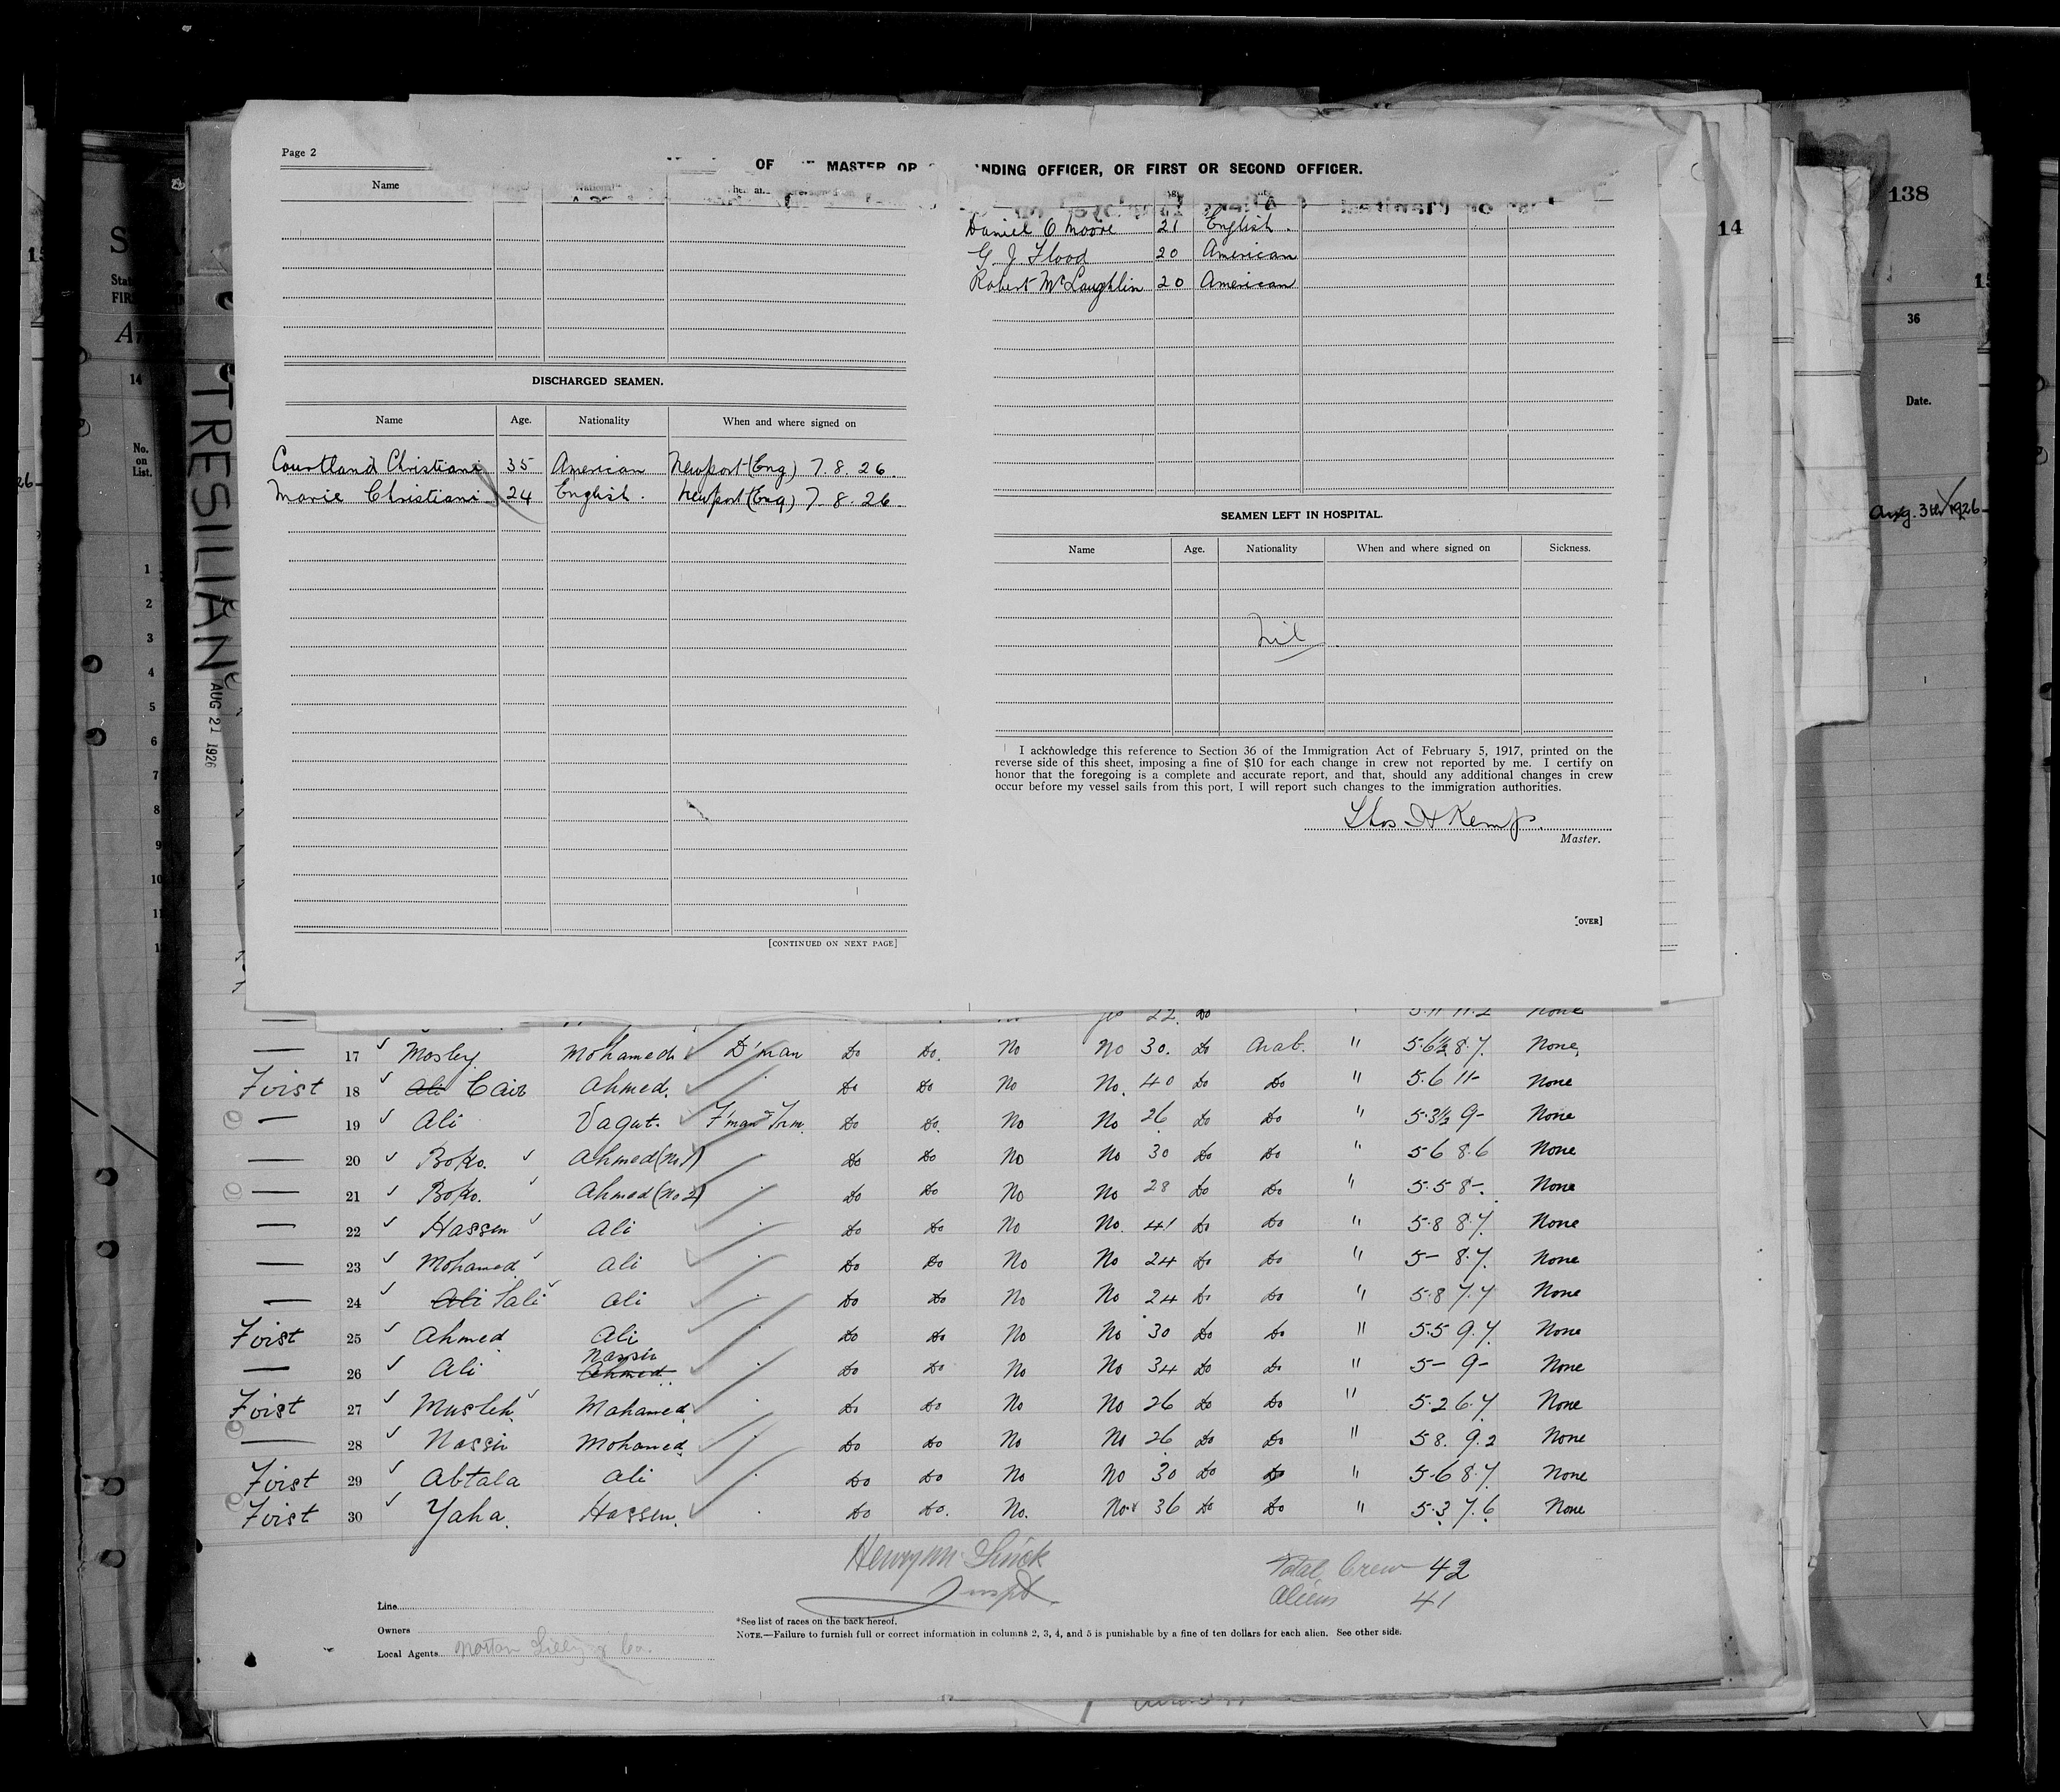 Page 2
OF MASTER OR NDING OFFICER, OR FIRST OR SECOND OFFICER.
Name
Daniel O Moore 21 English.
G. J Flood 20 American
Robert McLaughlin 20 American
DISCHARGED SEAMEN.
Name Age. Nationality When and where signed on
Courtland Christiani 35 American Newport (Eng) 7.8.26.
Marie Christiani 24 English. Newport (Eng) 7.8.26.
[CONTINUED ON NEXT PAGE]
SEAMEN LEFT IN HOSPITAL.
Name Age. Nationality When and where signed on Sickness.
Nil
I acknowledge this reference to Section 36 of the Immigration Act of February 5, 1917, printed on the
reverse side of this sheet, imposing a fine of $10 for each change in crew not reported by me. I certify on
honor that the foregoing is a complete and accurate report, and that, should any additional changes in crew
occur before my vessel sails from this port, I will report such changes to the immigration authorities.
Thos H Kemp.
Master.
[OVER]
TRESILIAN
AUG 21 1926
14
No.
on
List.
1
2
3
4
5
6
7
8
9
10
11
138
14
36
Date.
Aug. 3rd 1926
22 Do None
— 17 Mosley Mohamed D'man Do Do. No No 30. Do Arab. " 5.6½ 8.7. None,
First 18 Ali Cair Ahmed. Do Do No No. 40 Do Do " 5.6 11- None
— 19 Ali Vagut. F'man Trm. Do Do. No No 26 Do Do " 5.3½ 9- None
— 20 Boko. Ahmed (No 1) Do Do No No 30 Do Do " 5 6 8.6 None
— 21 Boko. Ahmed (No 2) Do Do No No 28 Do Do " 5.5 8-. None
— 22 Hassen Ali Do Do No No. 41 Do Do " 5.8 8.7. None
— 23 Mohamed Ali Do Do No No 24 Do Do " 5- 8.7. None
— 24 Ali Sali Ali Do Do No No 24 Do Do " 5.8 7.7 None
First 25 Ahmed Ali Do Do No No 30 Do Do " 5.5 9.7. None
— 26 Ali Nassir Ahmed Do Do No No 34 Do Do " 5- 9- None
First 27 Musleh Mohamed Do Do No No 26 Do Do " 5.2 6.7 None
— 28 Nassir Mohamed Do Do No No 26 Do Do " 5 8. 9.2 None
First 29 Abtala Ali Do Do No No 30 Do Do " 5.6 8.7. None
First 30 Yaha. Hassen. Do Do. No. No. 36 Do Do " 5.3 7.6 None
Insptr.
Total Crew 42
Aliens 41
Line
Owners
Local Agents Norton Lilly & Co.
*See list of races on the back hereof.
NOTE.—Failure to furnish full or correct information in columns 2, 3, 4, and 5 is punishable by a fine of ten dollars for each alien. See other side.